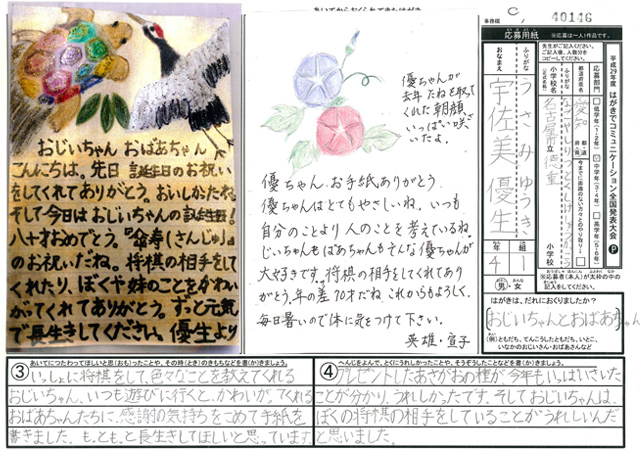 おじいちゃん おばあちゃん
こんにちは。先日 誕生日のお祝い
をしてくれてありがとう。おいしかったね。
そして今日はおじいちゃんの誕生日!
八十才おめでとう。『傘寿(さんじゅ)』
のお祝いだね。将棋の相手をしてく
れたり、ぼくや妹のことをかわい
がってくれてありがとう。ずっと元気
で長生きしてください。優生より
優ちゃんが
去年 たねを取って
くれた朝顔
いっぱい咲き
ました。
優ちゃん、お手紙ありがとう。
優ちゃんはとてもやさしいね。いつも
自分のことより 人のことを考えているね。
じいちゃんもばあちゃんもそんな優ちゃんが
大好きです。将棋の相手をしてくれてあり
がとう。年の差70才だね これからもよろしく。
毎日暑いので体に気をつけて下さい。
英雄・宣子
40146
応募用紙
応募は一人1作品です。
平成29年度 はがきでコミュニケーション全国発表大会
おなまえ
ふりがな
うさみ ゆうき
宇佐美 優生
年 組
4 1
男・女
応募部門
低学年(1・2年)
中学年(3・4年)
高学年(5・6年)
都道府県名
愛知
小学校名
名古屋市立 徳重
小学校
※応募者(本人)が太枠の中の
記入をしてください。
はがきは、だれにおくりましたか?
おじいちゃんとおばあちゃん
(例)ともだち、てんこうしたともだち、いとこ、
いなかのおじいさん・おばあさんなど
③ あいてにつたわってほしいと思(おも)ったことや、その時(とき)のきもちなどを書(か)きましょう。
いっしょに将棋をして、色々なことを教えてくれる
おじいちゃん、いつも遊びに行くと、かわいがってくれる
おばあちゃんたちに、感謝の気持ちをこめて手紙を
書きました。もっともっと長生きしてほしいと思っています。
④ へんじをよんで、とくにうれしかったことや、そうぞうしたことなどを書(か)きましょう。
プレゼントしたあさがおの種が今年もいっぱいさいた
ことが分かり、うれしかったです。そしておじいちゃんは、
ぼくの将棋の相手をしていることがうれしいんだ
と思いました。